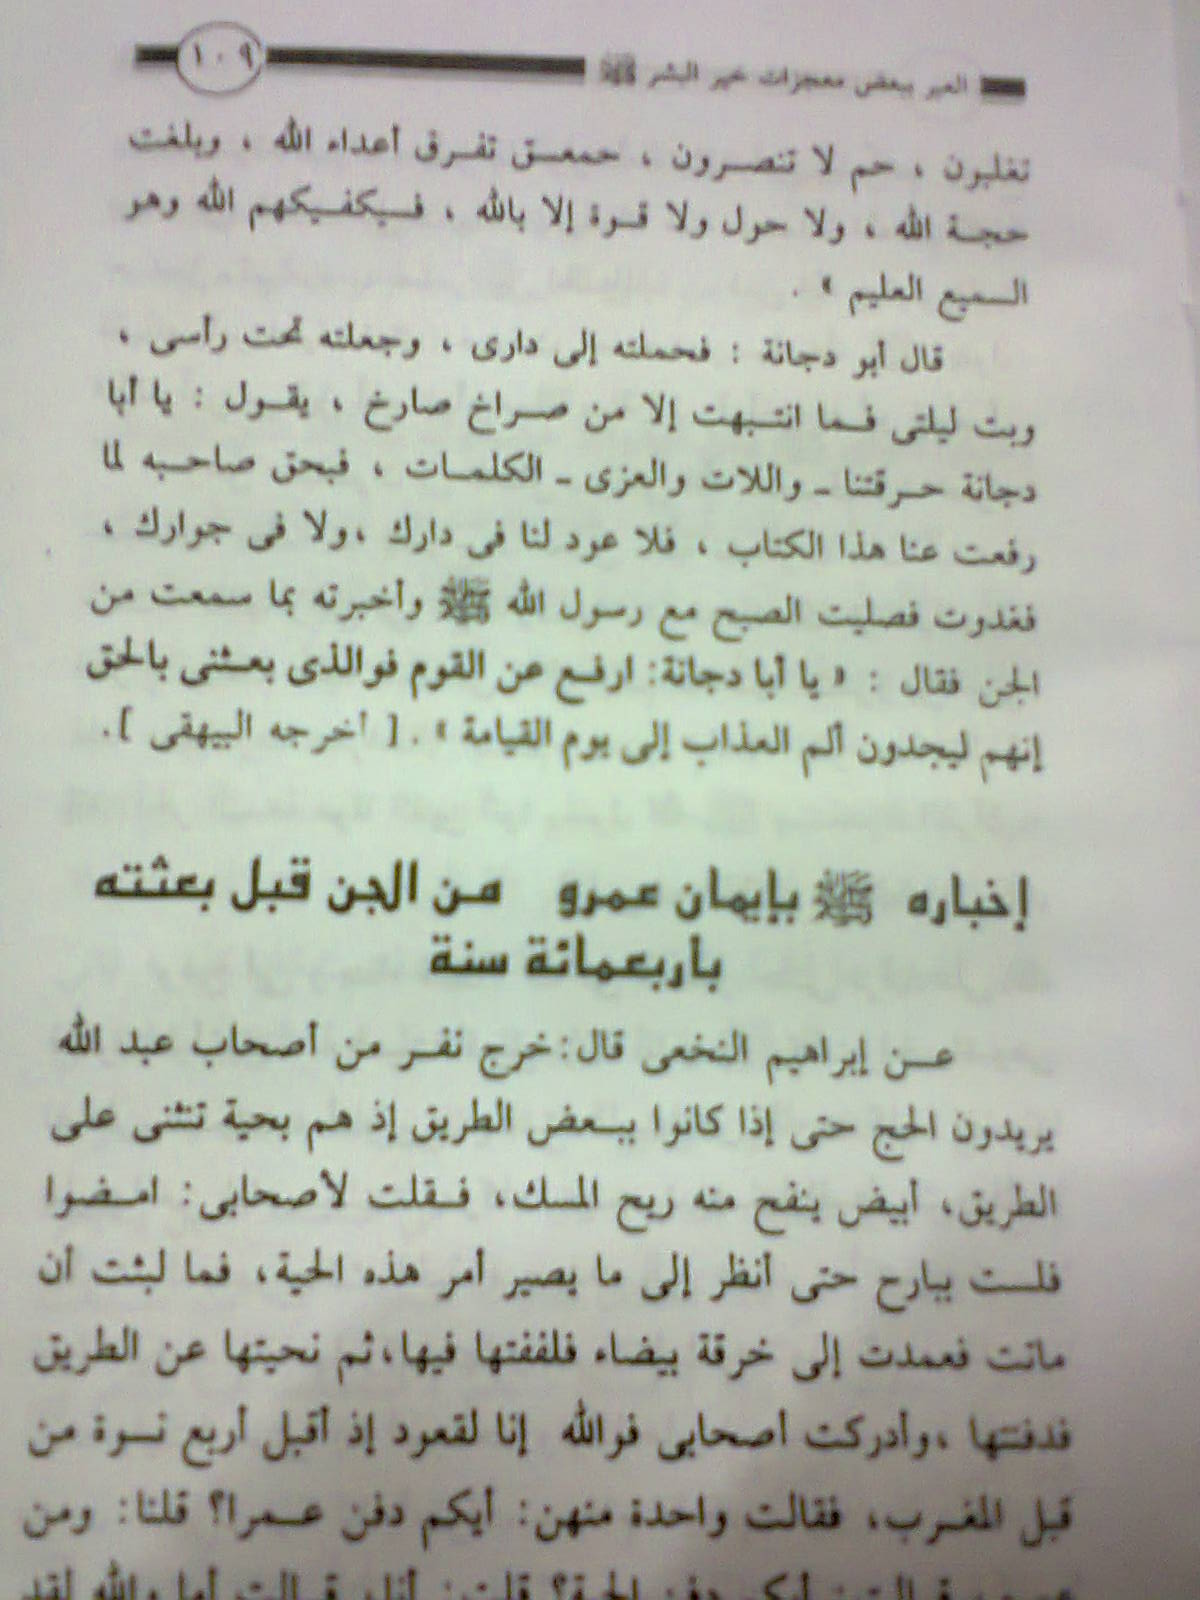 العبر ببعض معجزات خير البشر ﷺ ١٠٩
تغلبون ، حم لا تنصرون ، حمعسق تفرق أعداء الله ، وبلغت
حجة الله ، ولا حول ولا قوة إلا بالله ، فسيكفيكهم الله وهو
السميع العليم » .
قال أبو دجانة : فحملته إلى دارى ، وجعلته تحت رأسى ،
وبت ليلتى فما انتبهت إلا من صراخ صارخ ، يقول : يا أبا
دجانة حرقتنا ـ واللات والعزى ـ الكلمات ، فبحق صاحبه لما
رفعت عنا هذا الكتاب ، فلا عود لنا فى دارك ،ولا فى جوارك ،
فغدوت فصليت الصبح مع رسول الله ﷺ وأخبرته بما سمعت من
الجن فقال : « يا أبا دجانة: ارفع عن القوم فوالذى بعثنى بالحق
إنهم ليجدون ألم العذاب إلى يوم القيامة » . [ أخرجه البيهقى ].
إخباره ﷺ بإيمان عمرو من الجن قبل بعثته
بأربعمائة سنة
عن إبراهيم النخعى قال: خرج نفر من أصحاب عبد الله
يريدون الحج حتى إذا كانوا ببعض الطريق إذ هم بحية تتثنى على
الطريق، أبيض ينفح منه ريح المسك، فقلت لأصحابى: امضوا
فلست ببارح حتى أنظر إلى ما يصير أمر هذه الحية، فما لبثت أن
ماتت فعمدت إلى خرقة بيضاء فلففتها فيها،ثم نحيتها عن الطريق
فدفنتها ،وأدركت أصحابى فوالله إنا لقعود إذ أقبل أربع نسوة من
قبل المغرب، فقالت واحدة منهن: أيكم دفن عمرا؟ قلنا: ومن
أيكم دفن الحية؟ قلت: أنا، قالت أما والله لقد